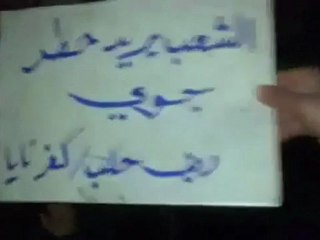 الشعب يريد حظر
جوي
ريف حلب/كفرنايا